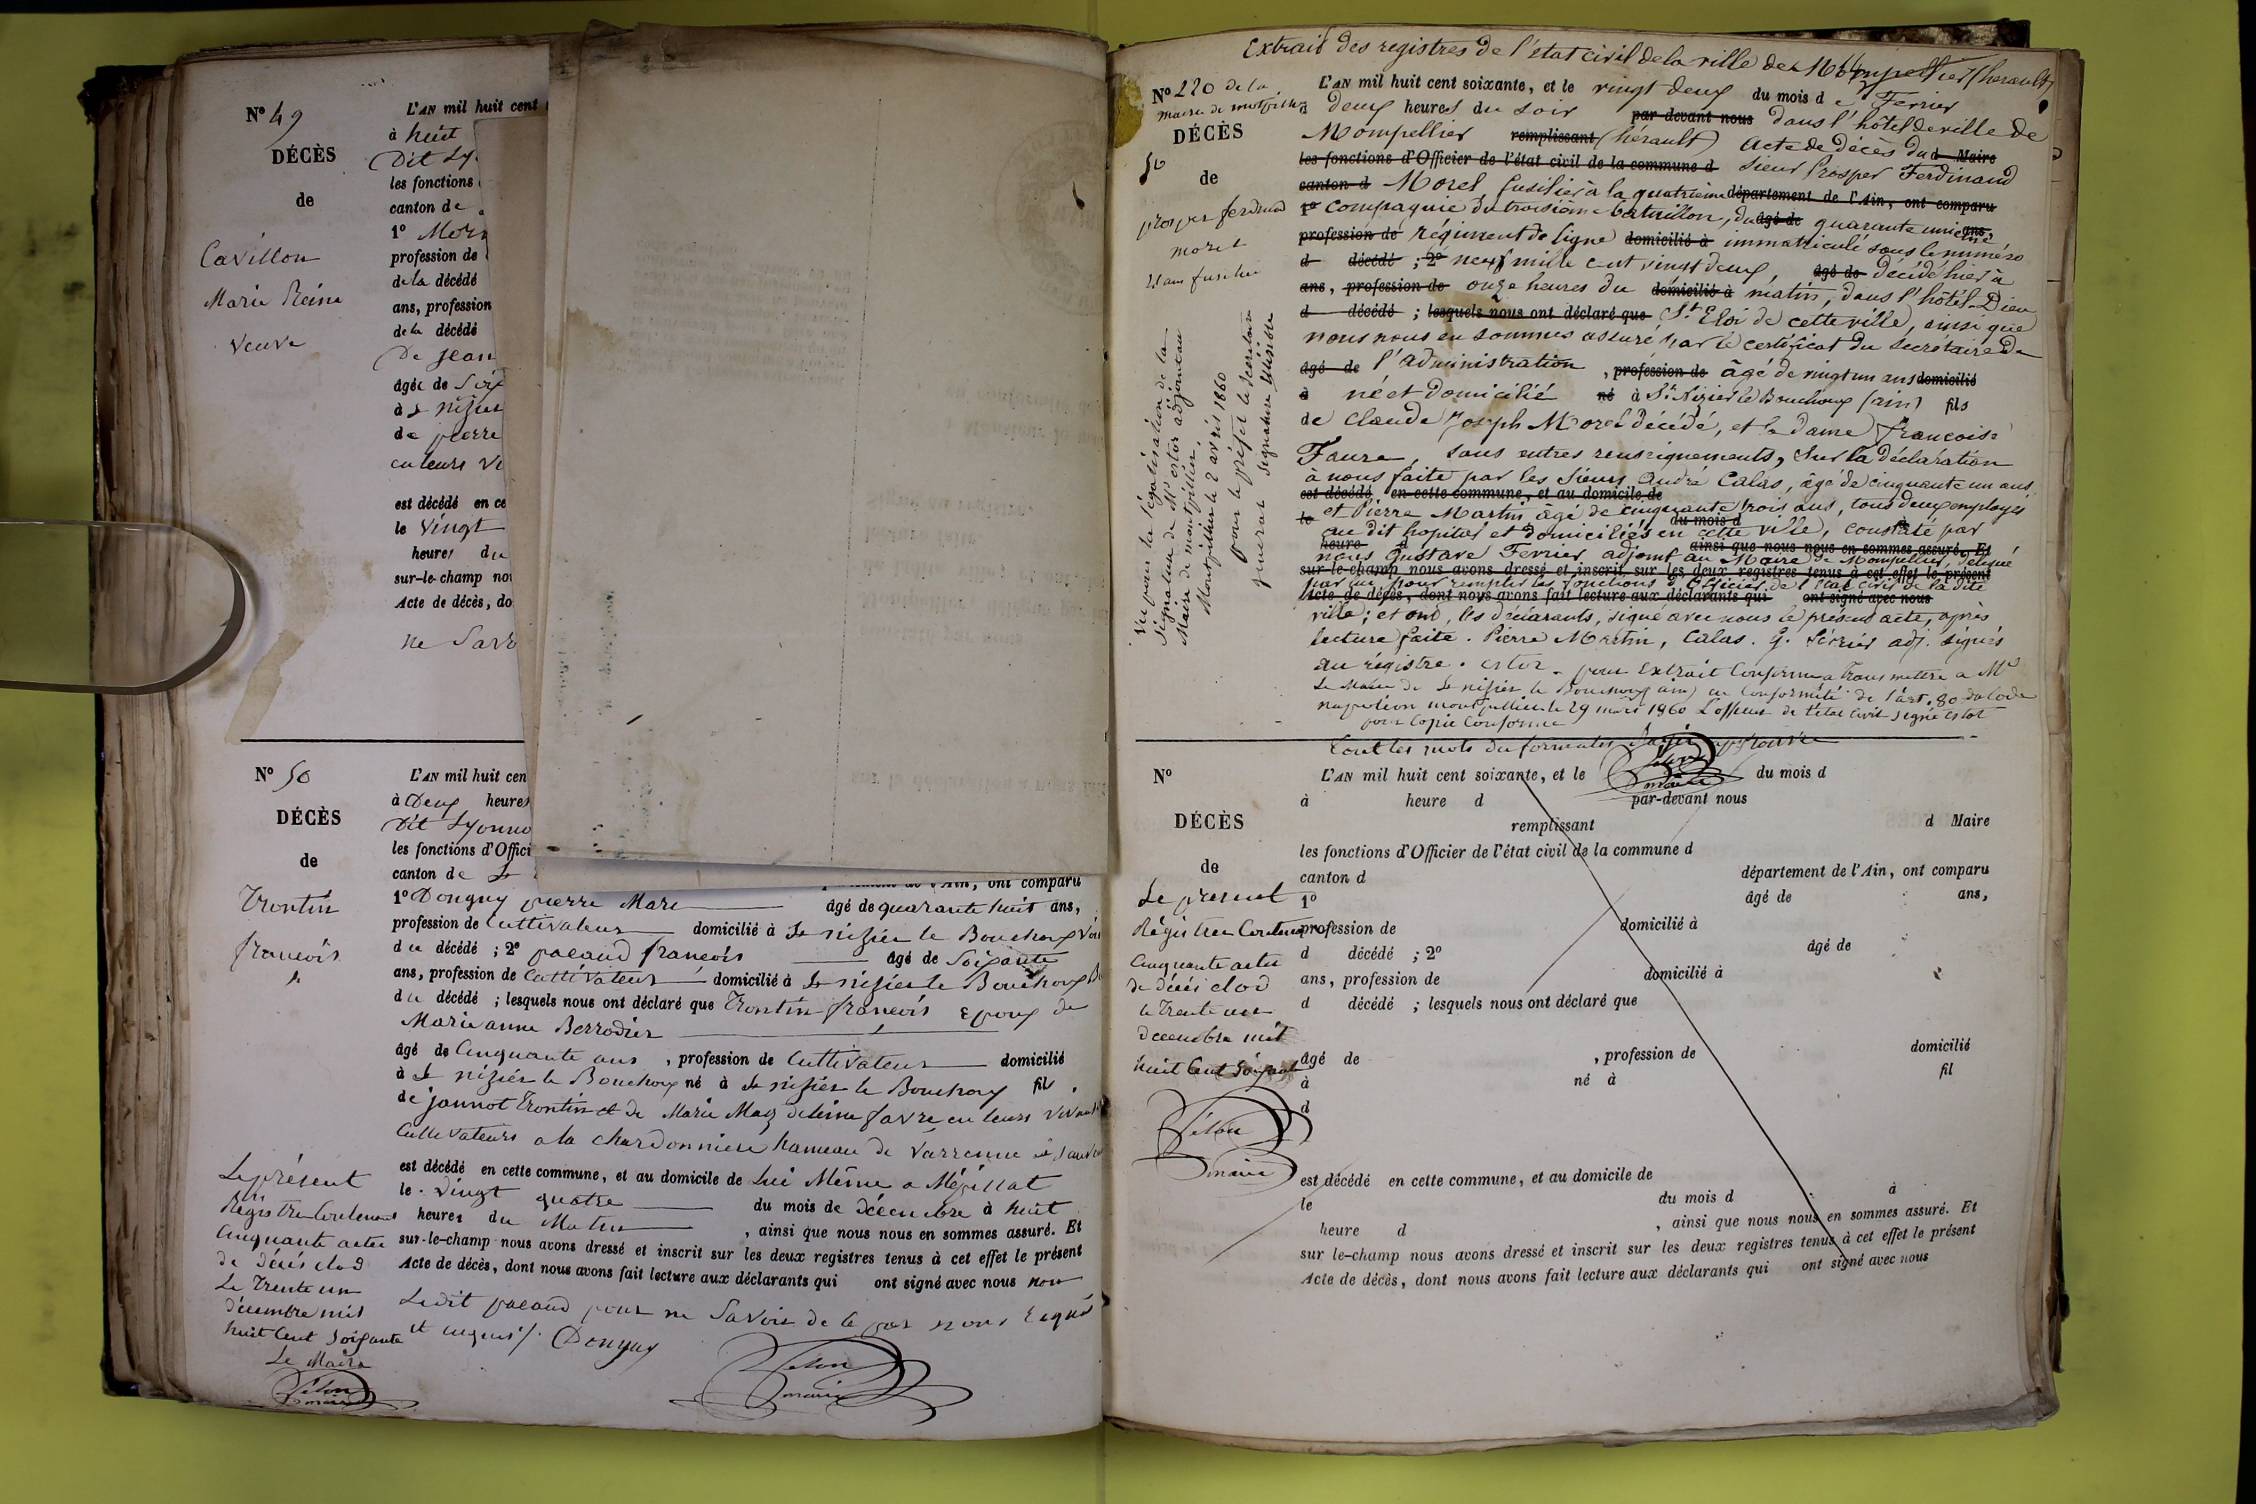 N° 49
DÉCÈS
de
Cavillon
Marie Reine
Veuve
L'AN mil huit cent
à huit
Dit Ly
les fonctions
canton de
1°
profession de
de la décédé
ans, profession
de la décédé
De Jean
âgée de
à St nizier
de pierre
cu leurs vi
est décédé en ce
le Vingt
heures du
sur-le-champ no
Acte de décès, do
ne Savo
N° 50
DÉCÈS
de
Trontin
françois
Le présent
Régistre Contenant
Cinquante actes
de décés clos
Le Trente un
décembre mil
huit Cent Soixante
Le Maire
L'AN mil huit cen
à Deux heures
Dit Lyonno
les fonctions d'Offici
canton de St
de l'Ain, ont comparu
1° Donguy pierre Marie âgé de quarante huit ans,
profession de Cultivateur domicilié à St nizier le Bouchoux Voi
du décédé ; 2° pacaud françois âgé de Soixante
ans, profession de Cultivateur domicilié à St nizier le Bouchoux
du décédé ; lesquels nous ont déclaré que Trontin françois Epoux de
Marie anne Berrodier
âgé de Cinquante ans , profession de Cultivateur domicilié
à St nizier le Bouchoux né à St nizier le Bouchoux fil
de jannot Trontin et de Marie Magdeleine favre en leurs Vivant
Cultivateurs a la chardonniere hameau de Varrenne
est décédé en cette commune, et au domicile de Lui Même a Mézillat
le Vingt quatre du mois de Décembre à huit
heures du Matin , ainsi que nous nous en sommes assuré. Et
sur-le-champ nous avons dressé et inscrit sur les deux registres tenus à cet effet le présent
Acte de décès, dont nous avons fait lecture aux déclarants qui ont signé avec nous non
Ledit pacaud pour ne Savoir de ce par nous Requis
et enquis /. Donguy
maire
Extrait des registres de l'état civil de la ville de Montpellier (hérault)
N° 220 de la
mairie de montpellier
DÉCÈS
50
de
prosper ferdinand
morel
21 ans fusilier
Vu pour la légalisation de la
Signature de Mr estor adjoint au
Maire de montpellier.
Montpellier le 2 avril 1860
pour le préfet le Secrétaire
général Signature illisible
L'AN mil huit cent soixante, et le vingt deux du mois de Fevrier
à deux heures du soir par-devant nous dans l'hôtel de ville de
Mompellier remplissant (hérault) Acte de décès du d Maire
les fonctions d'Officier de l'état civil de la commune d Sieur Prosper Ferdinand
canton d Morel, fusilier à la quatrième département de l'Ain, ont comparu
1° compagnie du troisième bataillon, du âgé de quarante unième ans,
profession de régiment de ligne domicilié à immatriculé sous le numéro
d décédé ; 2° neuf mille cent vingt deux, âgé de décédé hier à
ans, profession de onze heures du domicilié à matin, dans l'hôtel-Dieu
d décédé ; lesquels nous ont déclaré que St Eloi de cette ville, ainsi que
nous nous en sommes assuré par le certificat du secrétaire de
âgé de l'administration , profession de âgé de vingt un ans domicilié
à né et domicilié né à St Nizier le Bouchoux (ain) fils
de Claude Joseph Morel décédé, et la Dame françoise
Faure, sans autres renseignements, sur la déclaration
à nous faite par les Sieurs André Calas, âgé de cinquante un ans,
est décédé en cette commune, et au domicile de
le et Pierre Martin âgé de cinquante trois ans, tous deux employés
du mois d
au dit hopital et domiciliés en cette ville, constaté par
heure d ainsi que nous nous en sommes assuré. Et
nous Gustave Fevrier adjoint au Maire de Mompellier, délégué
sur-le-champ nous avons dressé et inscrit sur les deux registres tenus à cet effet le présent
par lui pour remplir les fonctions d'Officier de l'état civil de la dite
Acte de décès, dont nous avons fait lecture aux déclarants qui ont signé avec nous
ville ; et ont, les déclarants, signé avec nous le présent acte, après
lecture faite. Pierre Martin, Calas. G. Février adj. signés
au régistre. estor - pour Extrait Conforme a Transmettre a Mr
Le Maire de St nizier le Bouchoux (ain) en Conformité de l'art. 80 du Code
napoléon montpellier le 29 mars 1860 L'officier de l'état Civil signé estor
pour Copie Conforme
Tout les mots du formulaire approuvé
maire
N°
DÉCÈS
de
Le présent
Régistre Contenant
Cinquante actes
de décés clos
le Trente un
décembre mil
huit Cent Soixante
maire
L'AN mil huit cent soixante, et le du mois d
à heure d par-devant nous
remplissant d Maire
les fonctions d'Officier de l'état civil de la commune d
canton d département de l'Ain, ont comparu
1° âgé de ans,
profession de domicilié à
d décédé ; 2° âgé de
ans, profession de domicilié à
d décédé ; lesquels nous ont déclaré que
âgé de , profession de domicilié
à né à fil
d
est décédé en cette commune, et au domicile de
le du mois d à
heure d , ainsi que nous nous en sommes assuré. Et
sur le-champ nous avons dressé et inscrit sur les deux registres tenus à cet effet le présent
Acte de décès, dont nous avons fait lecture aux déclarants qui ont signé avec nous